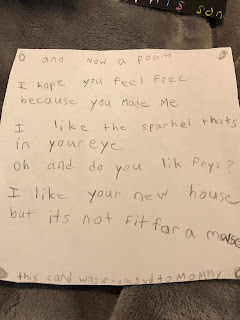 and now a poam
I hope you feel free
because you Made Me
I like the sparkel thats
in your eye
oh and do you lik frys?
I like your new house
but its not fit for a mouse
this card was from syd to MOMMY